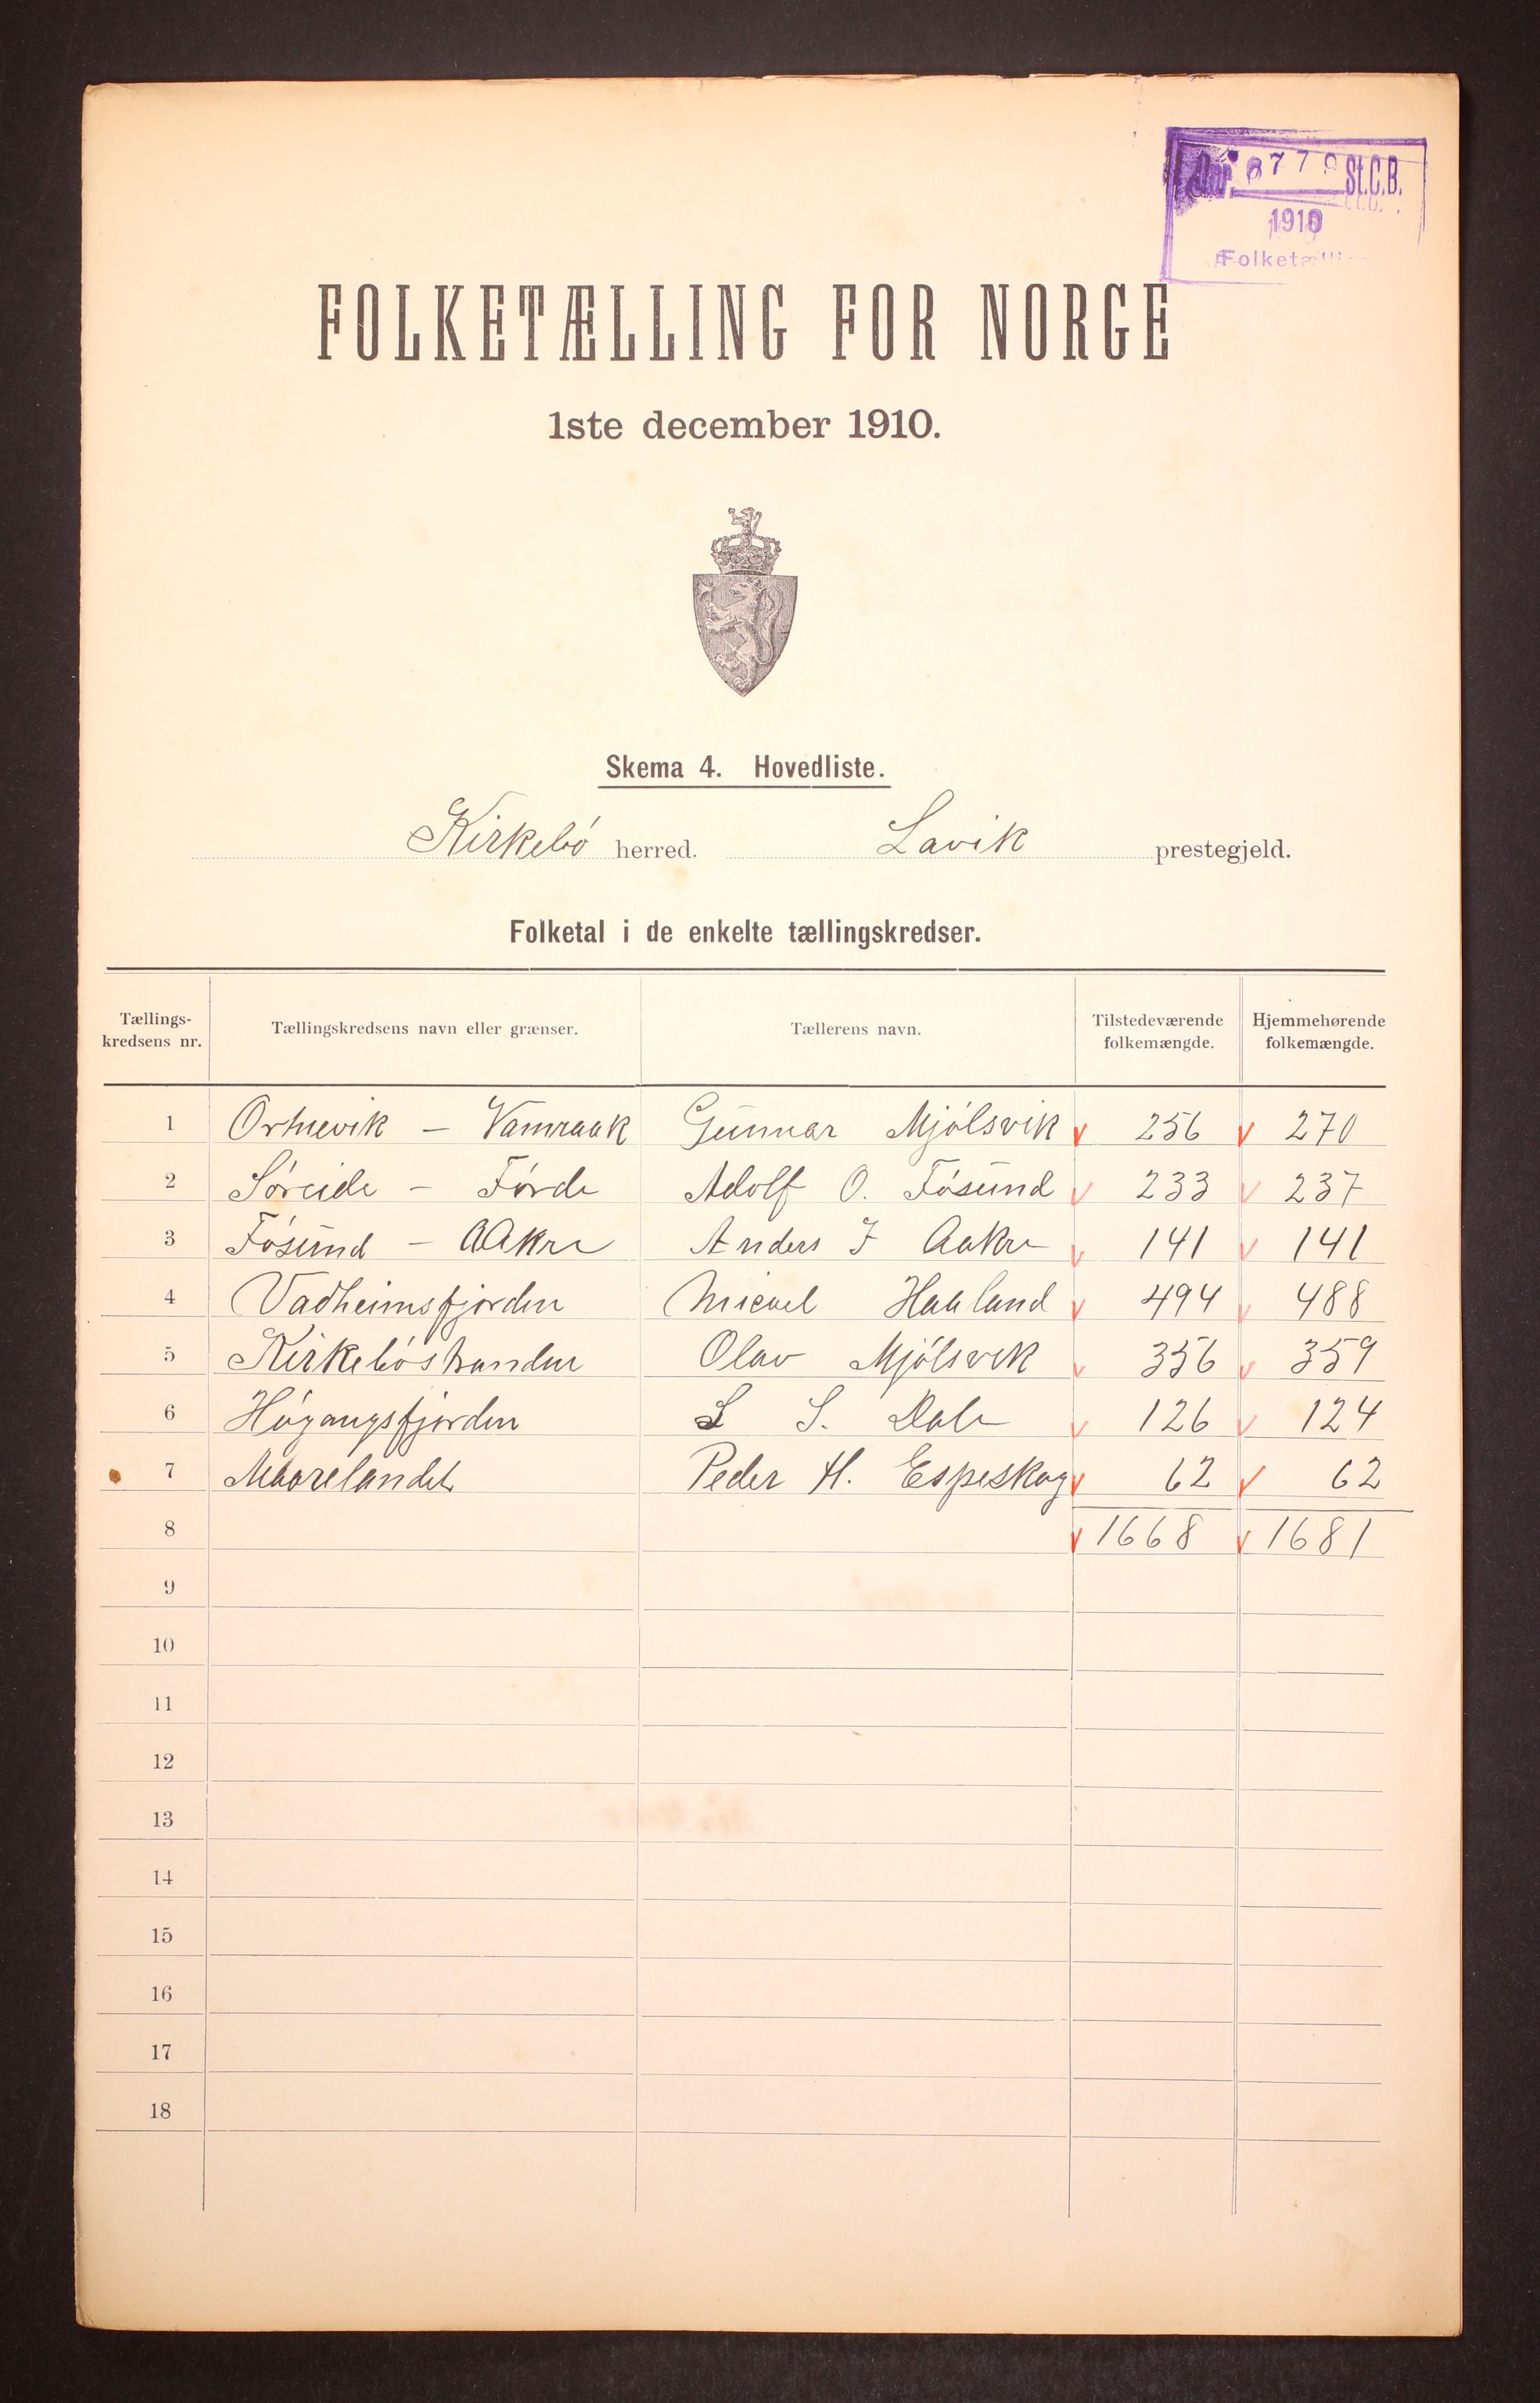 St.C.B.
1910
FOLKETÆLLING FOR NORGE
1ste december 1910.
Skema 4. Hovedliste.
Kirkebó herred. Lavik prestegjeld.
Folketal i de enkelte tællingskredser.
Tællings-kredsens nr. Tællingskredsens navn eller grænser. Tællerens navn. Tilstedeværende folkemængde. Hjemmehørende folkemængde.
1 Ortnevik – Vamraak Gunnar Mjólsvik 256 270
2 Sóreide – Fórde Adolf O. Fósund 233 237
3 Fósund – AAkre Anders I Aakre 141 141
4 Vadheimsfjorden Micael Haaland 494 488
5 Kirkebóstranden Olav Mjólsvik 356 359
6 Hóyangsfjorden S. Dale 126 124
7 Maarelandet Peder H. Espeskog 62 62
8 1668 1681
9
10
11
12
13
14
15
16
17
18